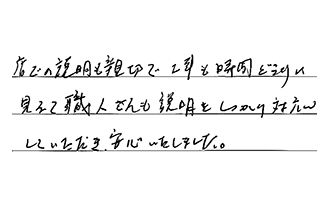 店での説明も親切で工事も時間どうり
見えて職人さんも説明をしっかり対応
していただき、安心いたしました。